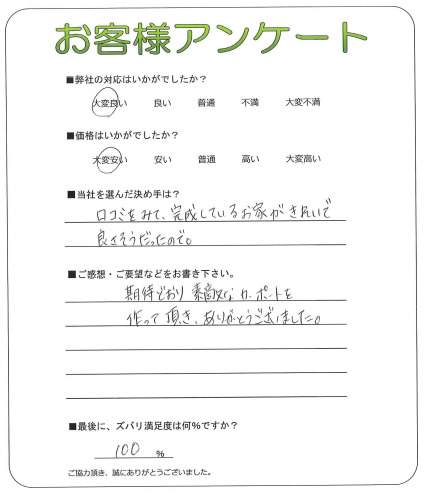 お客様アンケート
■弊社の対応はいかがでしたか？
大変良い 良い 普通 不満 大変不満
■価格はいかがでしたか？
大変安い 安い 普通 高い 大変高い
■当社を選んだ決め手は？
口コミをみて、完成しているお家がきれいで
良さそうだったので。
■ご感想・ご要望などをお書き下さい。
期待どおり素敵なカーポートを
作って頂き、ありがとうございました。
■最後に、ズバリ満足度は何％ですか？
100 %
ご協力頂き、誠にありがとうございました。